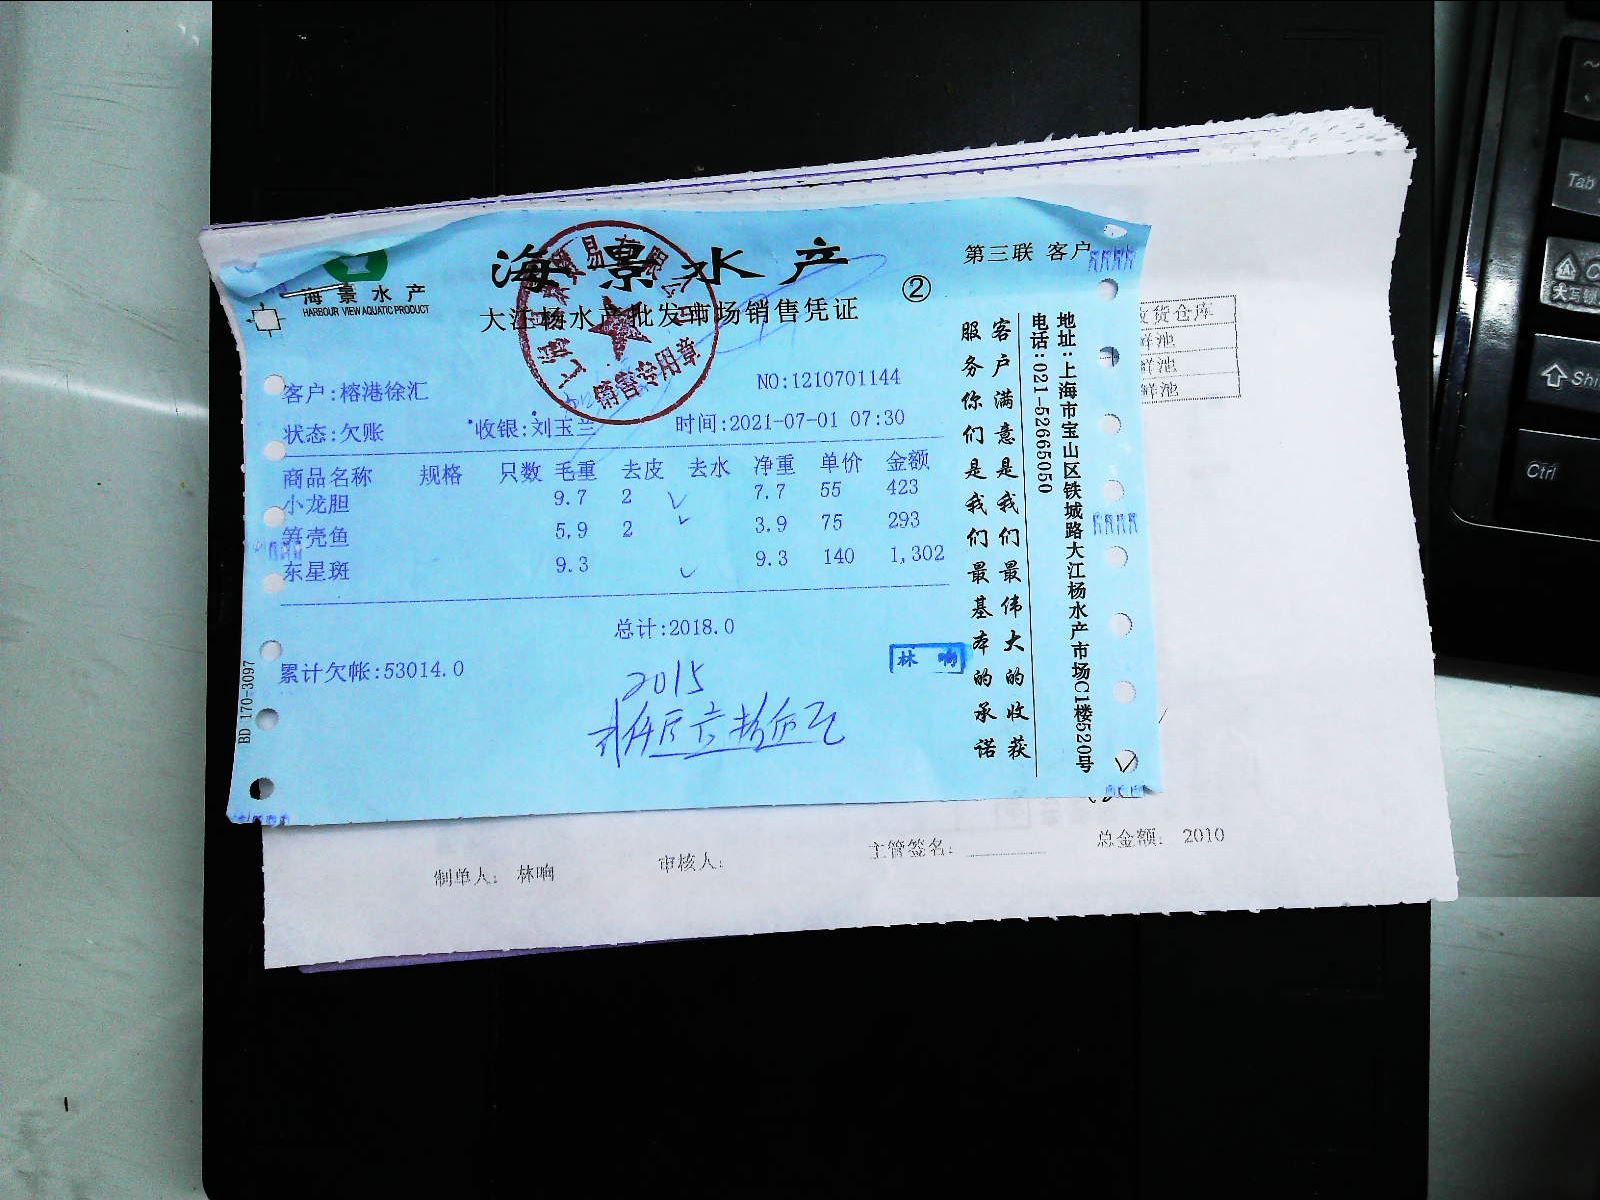 海景水产
第三联 客户
海景水产
HARBOUR VIEW AQUATIC PRODUCT
大江杨水产批发市场销售凭证
②
销售专用章
客户:榕港徐汇
NO:1210701144
状态:欠账
收银:刘玉兰
时间:2021-07-01 07:30
商品名称 规格 只数 毛重 去皮 去水 净重 单价 金额
小龙胆 9.7 2 7.7 55 423
笋壳鱼 5.9 2 3.9 75 293
东星斑 9.3 9.3 140 1,302
总计:2018.0
累计欠帐:53014.0
林响
2015
BD 170-3097
客户满意是我们最伟大的收获
服务你们是我们最基本的承诺
地址:上海市宝山区铁城路大江杨水产市场C1楼520号
电话:021-52665050
货仓库
鲜池
鲜池
鲜池
制单人: 林响
审核人:
主管签名:
总金额: 2010
Tab
大写锁
Shi
Ctrl